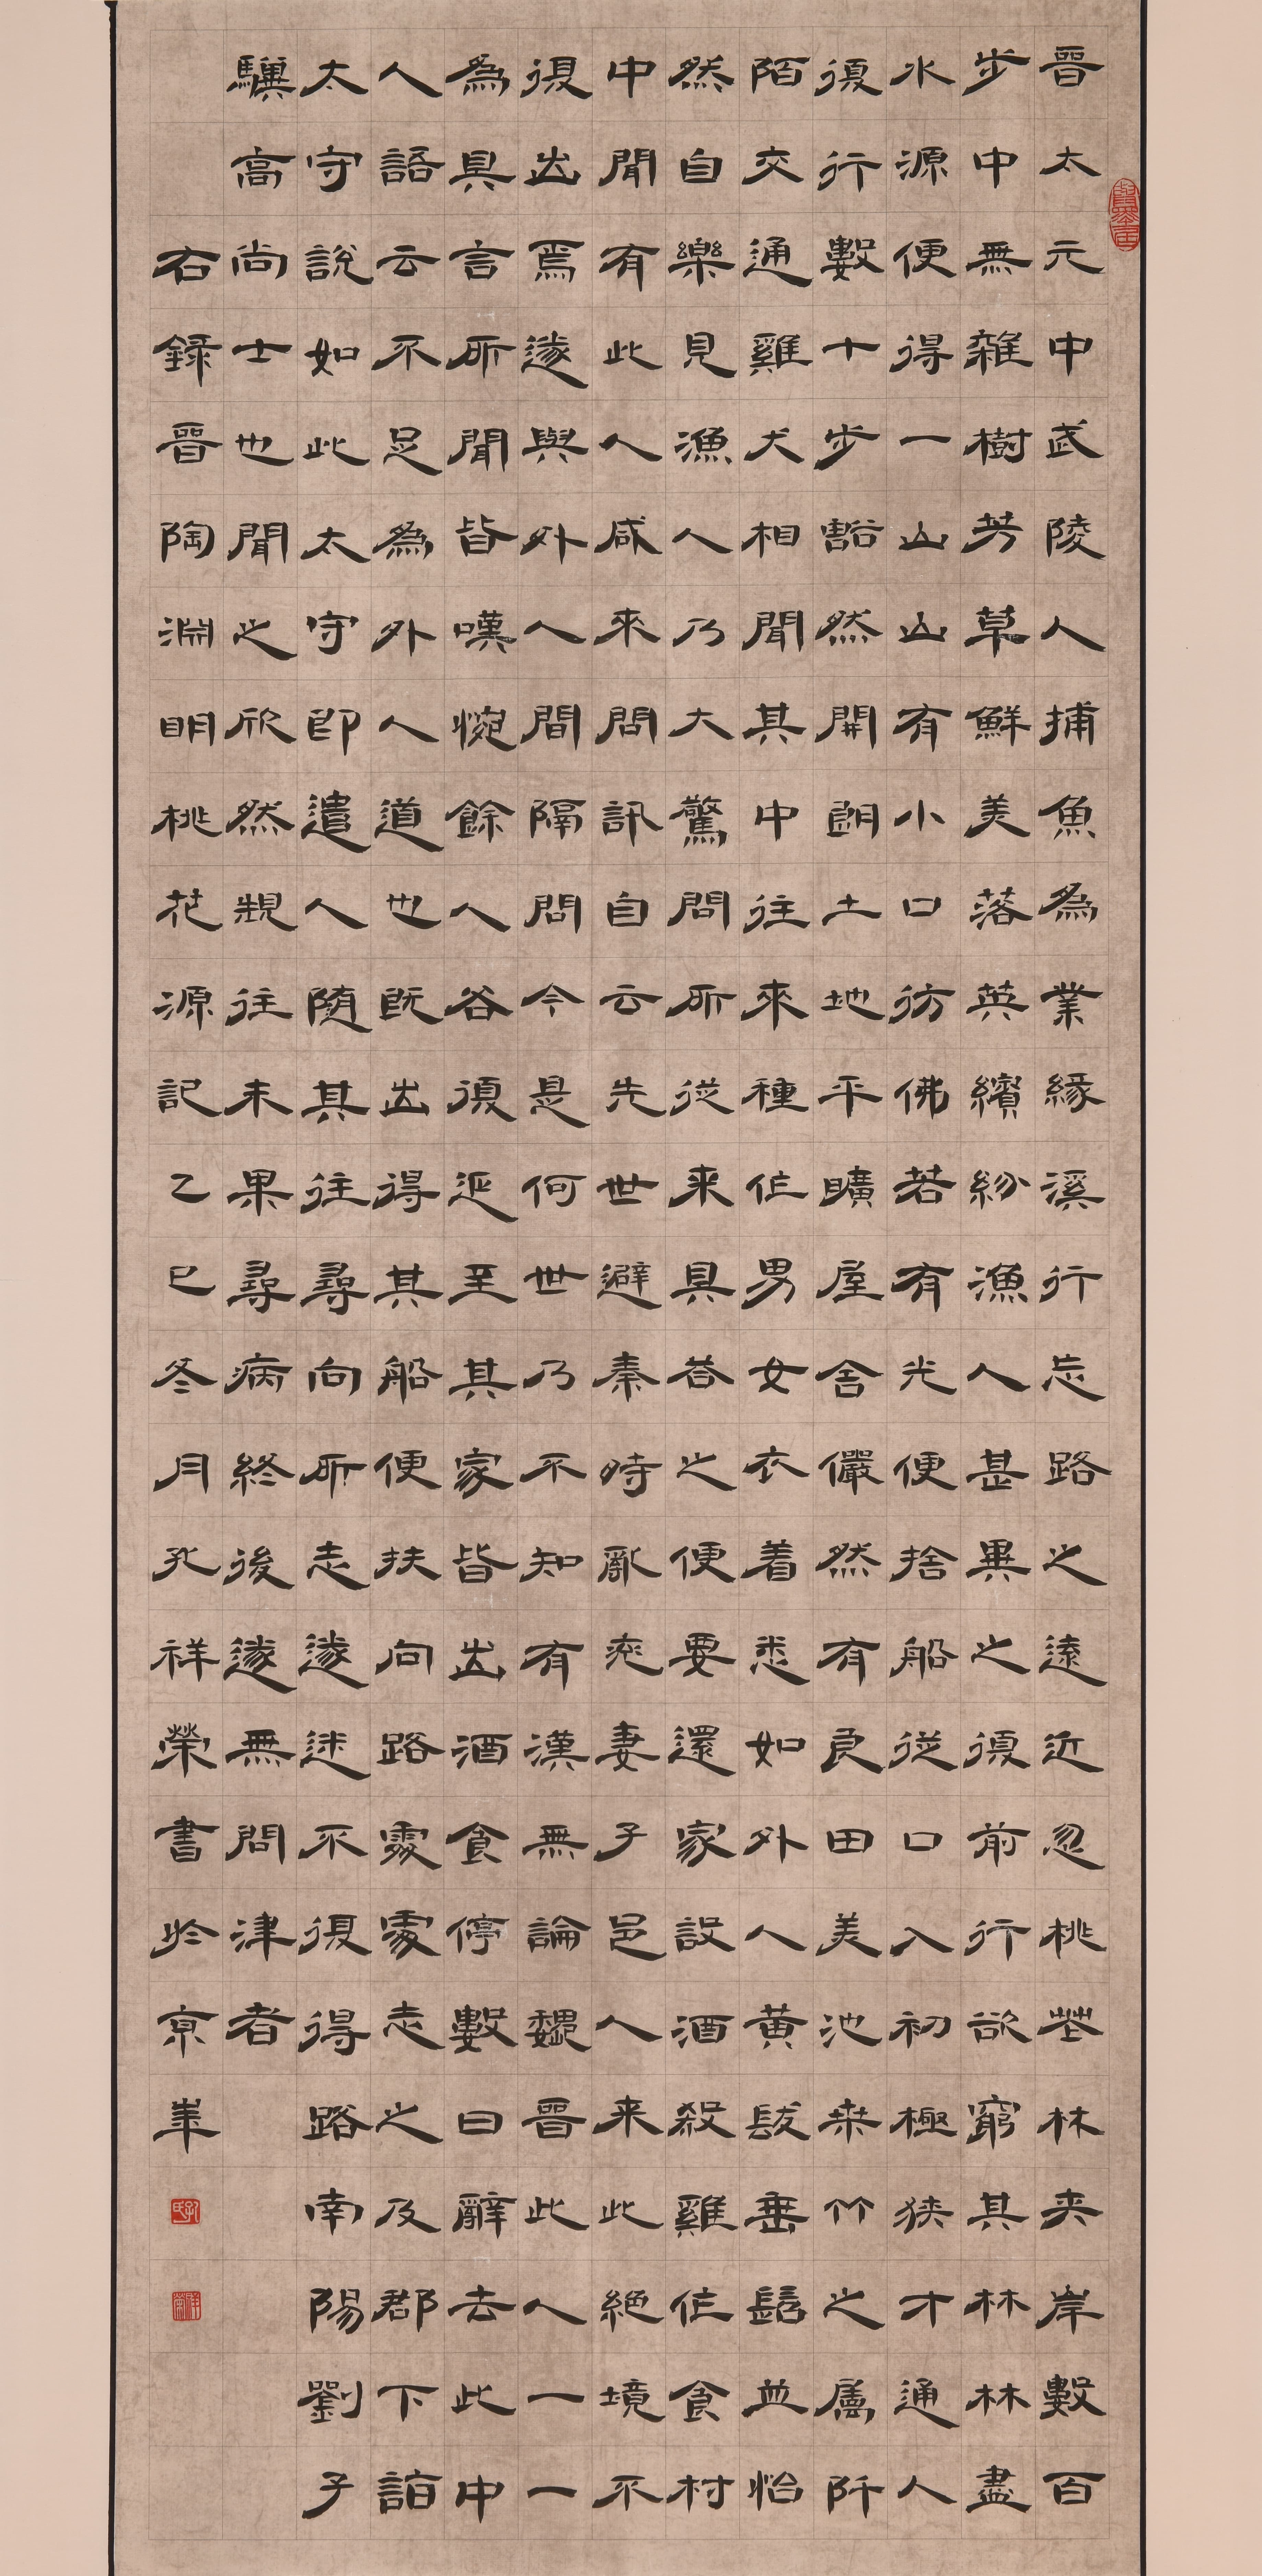 晉太元中武陵人捕魚為業緣溪行忘路之遠近忽桃花林夾岸數百
步中無雜樹芳草鮮美落英繽紛漁人甚異之復前行欲窮其林林盡
水源便得一山山有小口彷佛若有光便捨船從口入初極狹才通人
復行數十步豁然開朗土地平曠屋舍儼然有良田美池桑竹之屬阡
陌交通雞犬相聞其中往來種作男女衣着悉如外人黃髮垂髫並怡
然自樂見漁人乃大驚問所從来具荅之便要還家設酒殺雞作食村
中聞有此人咸來問訊自云先世避秦時亂率妻子邑人来此絕境不
復出焉遂與外人間隔問今是何世乃不知有漢無論魏晉此人一一
為具言所聞皆嘆惋餘人各復延至其家皆出酒食停數日辭去此中
人語云不足為外人道也既出得其船便扶向路處處志之及郡下詣
太守說如此太守即遣人隨其往尋向所志遂迷不復得路南陽劉子
驥高尚士也聞之欣然規往未果尋病終後遂無問津者
右錄晉陶淵明桃花源記乙巳冬月孔祥榮書於京華